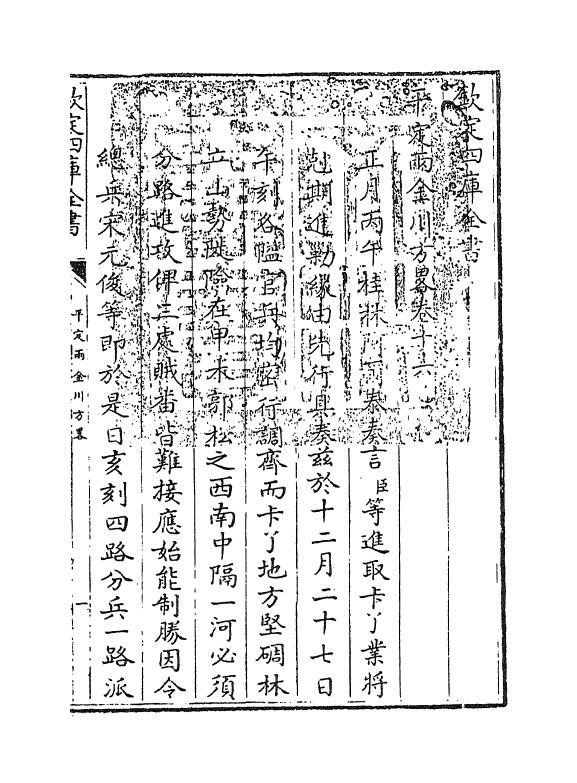 欽定四庫全書
平定兩金川方畧卷十六
正月丙午桂林阿爾泰奏言臣等進取卡丫業將
剋期進勦緣由先行具奏兹於十二月二十七日
午刻各隘官兵均密行調齊而卡丫地方堅碉林
立山勢陡險在申木郭松之西南中隔一河必須
分路進攻俾三處賊番皆難接應始能制勝因令
總兵宋元俊等即於是日亥刻四路分兵一路派
欽定四庫全書
平定兩金川方畧
一